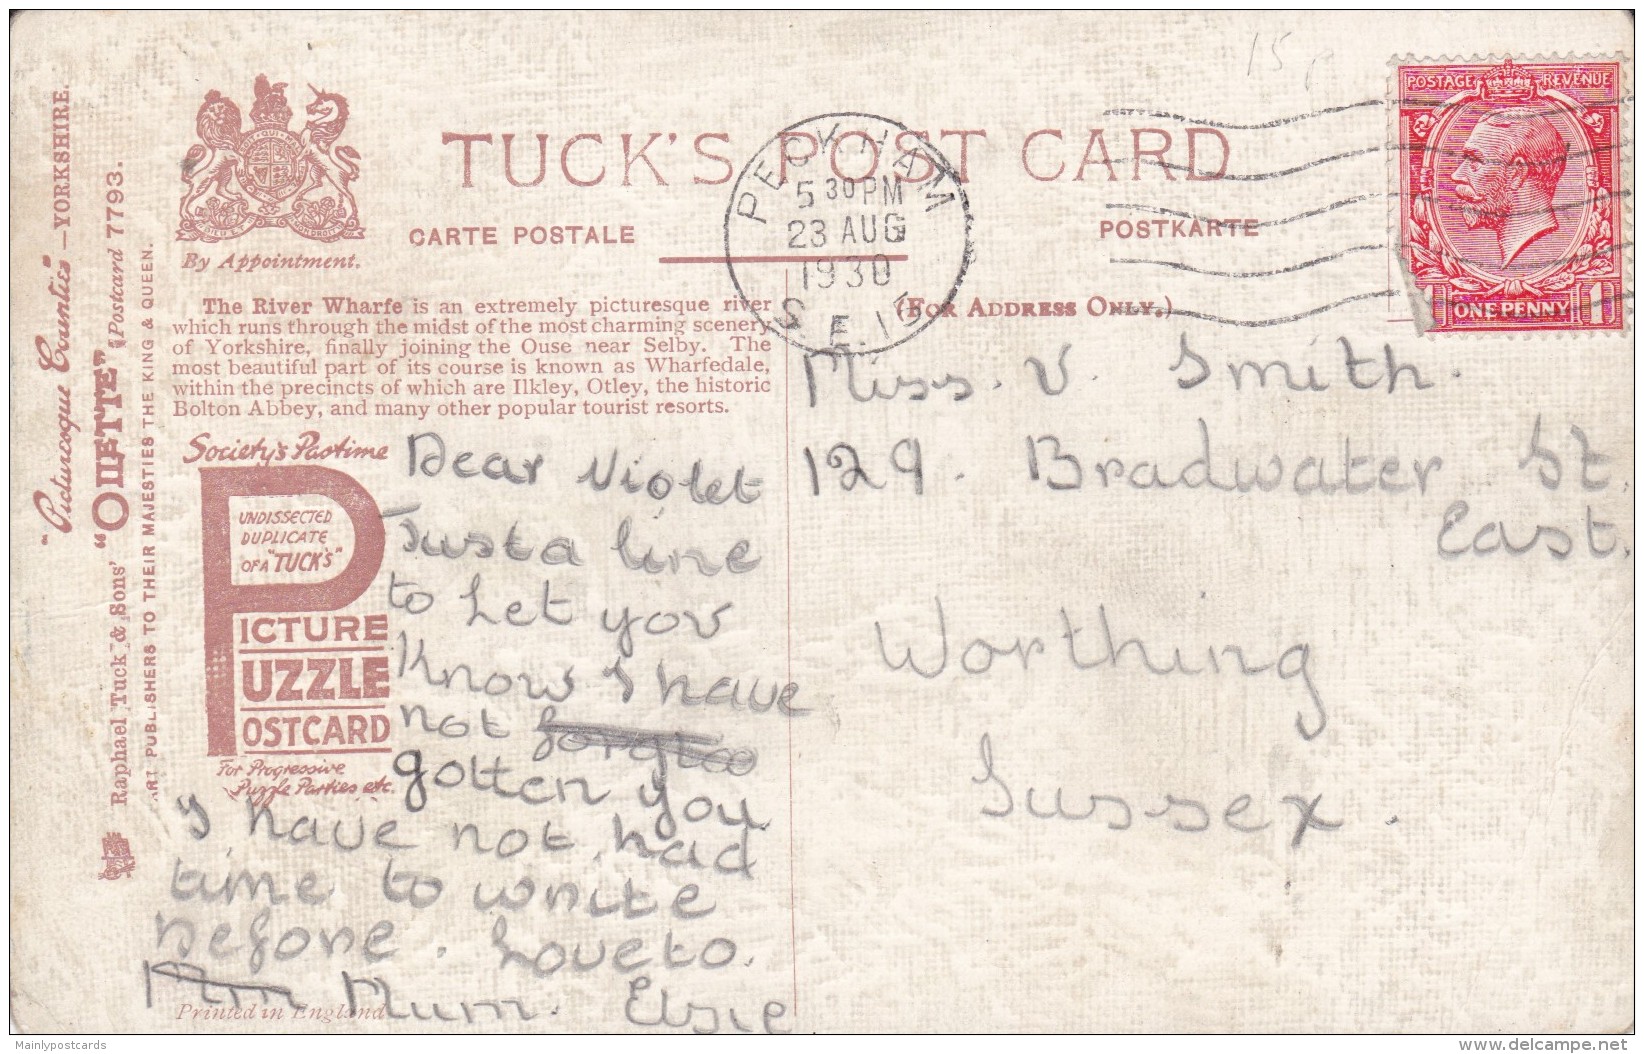 "Picturesque Counties" — YORKSHIRE.
Raphael Tuck & Sons' "OILETTE" [Postcard 7793.
ART PUBLISHERS TO THEIR MAJESTIES THE KING & QUEEN.
By Appointment.
TUCK'S POST CARD
CARTE POSTALE
POSTKARTE
The River Wharfe is an extremely picturesque river
which runs through the midst of the most charming scenery
of Yorkshire, finally joining the Ouse near Selby. The
most beautiful part of its course is known as Wharfedale,
within the precincts of which are Ilkley, Otley, the historic
Bolton Abbey, and many other popular tourist resorts.
Society's Pastime
UNDISSECTED
DUPLICATE
OF A "TUCK'S"
PICTURE
PUZZLE
POSTCARD
For Progressive
Puzzle Parties etc.
Dear Violet
Just a line
to let you
know I have
not
gotten you
I have not had
time to write
before. Love to.
Mum. Elsie
Printed in England
PECKHAM
5 30 PM
23 AUG
1930
S.E.15
15p
POSTAGE REVENUE
1 ONE PENNY 1
(FOR ADDRESS ONLY.)
Miss. V. Smith.
129. Bradwater St
East.
Worthing
Sussex.
Mainlypostcards
delcampe.net